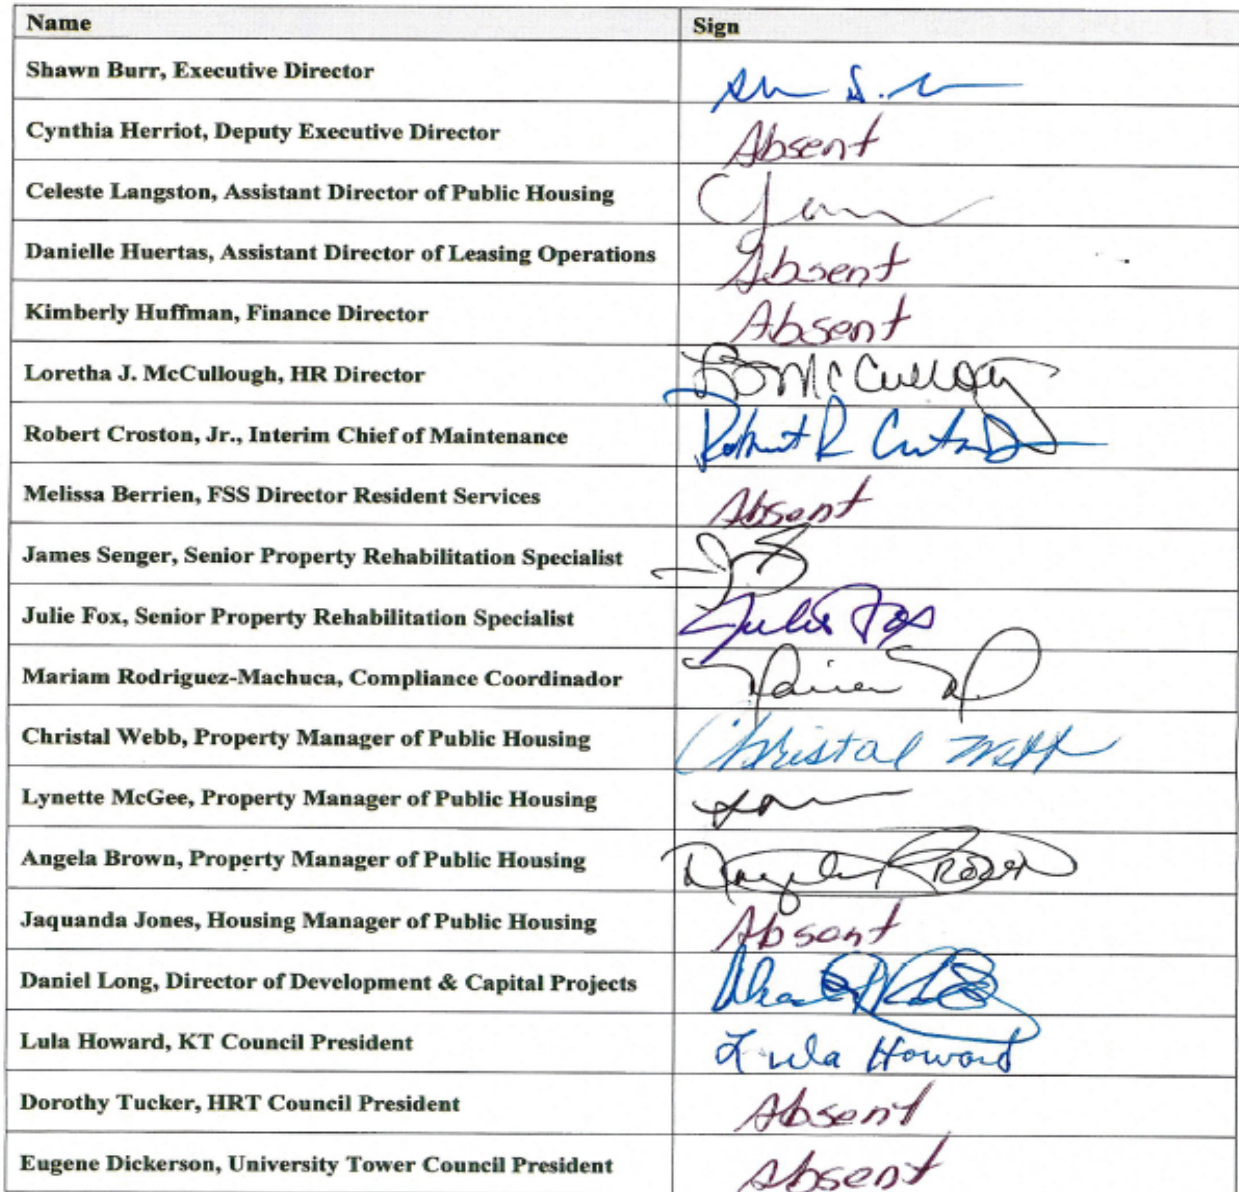 Name Sign
Shawn Burr, Executive Director
Cynthia Herriot, Deputy Executive Director Absent
Celeste Langston, Assistant Director of Public Housing
Danielle Huertas, Assistant Director of Leasing Operations Absent
Kimberly Huffman, Finance Director Absent
Loretha J. McCullough, HR Director
Robert Croston, Jr., Interim Chief of Maintenance Robert R
Melissa Berrien, FSS Director Resident Services Absent
James Senger, Senior Property Rehabilitation Specialist
Julie Fox, Senior Property Rehabilitation Specialist Julie Fox
Mariam Rodriguez-Machuca, Compliance Coordinador
Christal Webb, Property Manager of Public Housing Christal Webb
Lynette McGee, Property Manager of Public Housing
Angela Brown, Property Manager of Public Housing Angela Brown
Jaquanda Jones, Housing Manager of Public Housing Absent
Daniel Long, Director of Development & Capital Projects
Lula Howard, KT Council President Lula Howard
Dorothy Tucker, HRT Council President Absent
Eugene Dickerson, University Tower Council President Absent